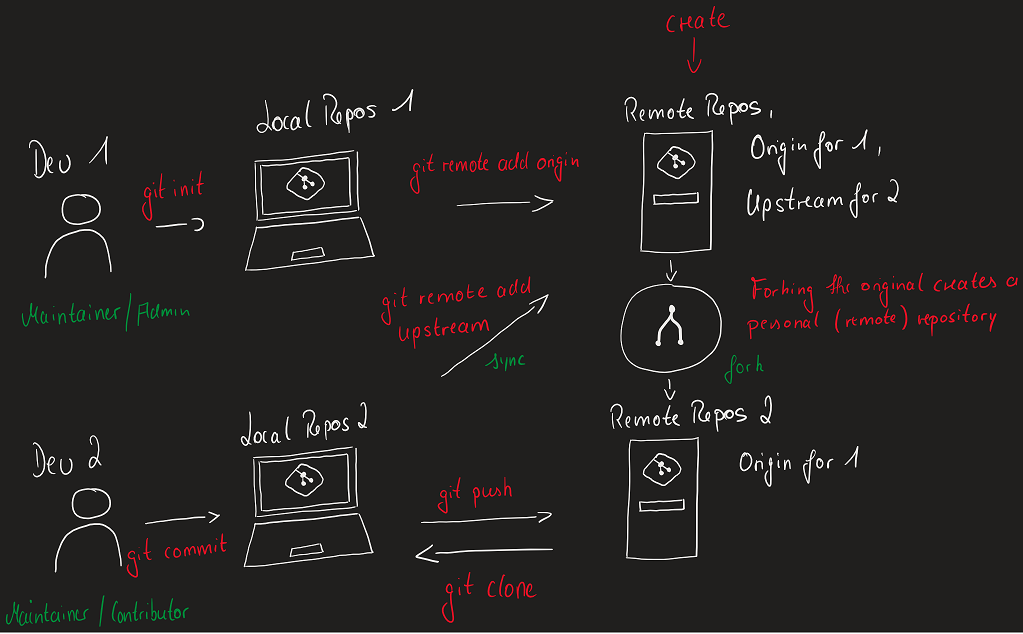 create
Local Repos 1
Remote Repos 1
Dev 1
git init
git remote add origin
Origin for 1,
Upstream for 2
Maintainer/Admin
git remote add
upstream
sync
Forking the original creates a
personal (remote) repository
fork
Local Repos 2
Remote Repos 2
Dev 2
Origin for 1
git push
git commit
git clone
Maintainer/Contributor